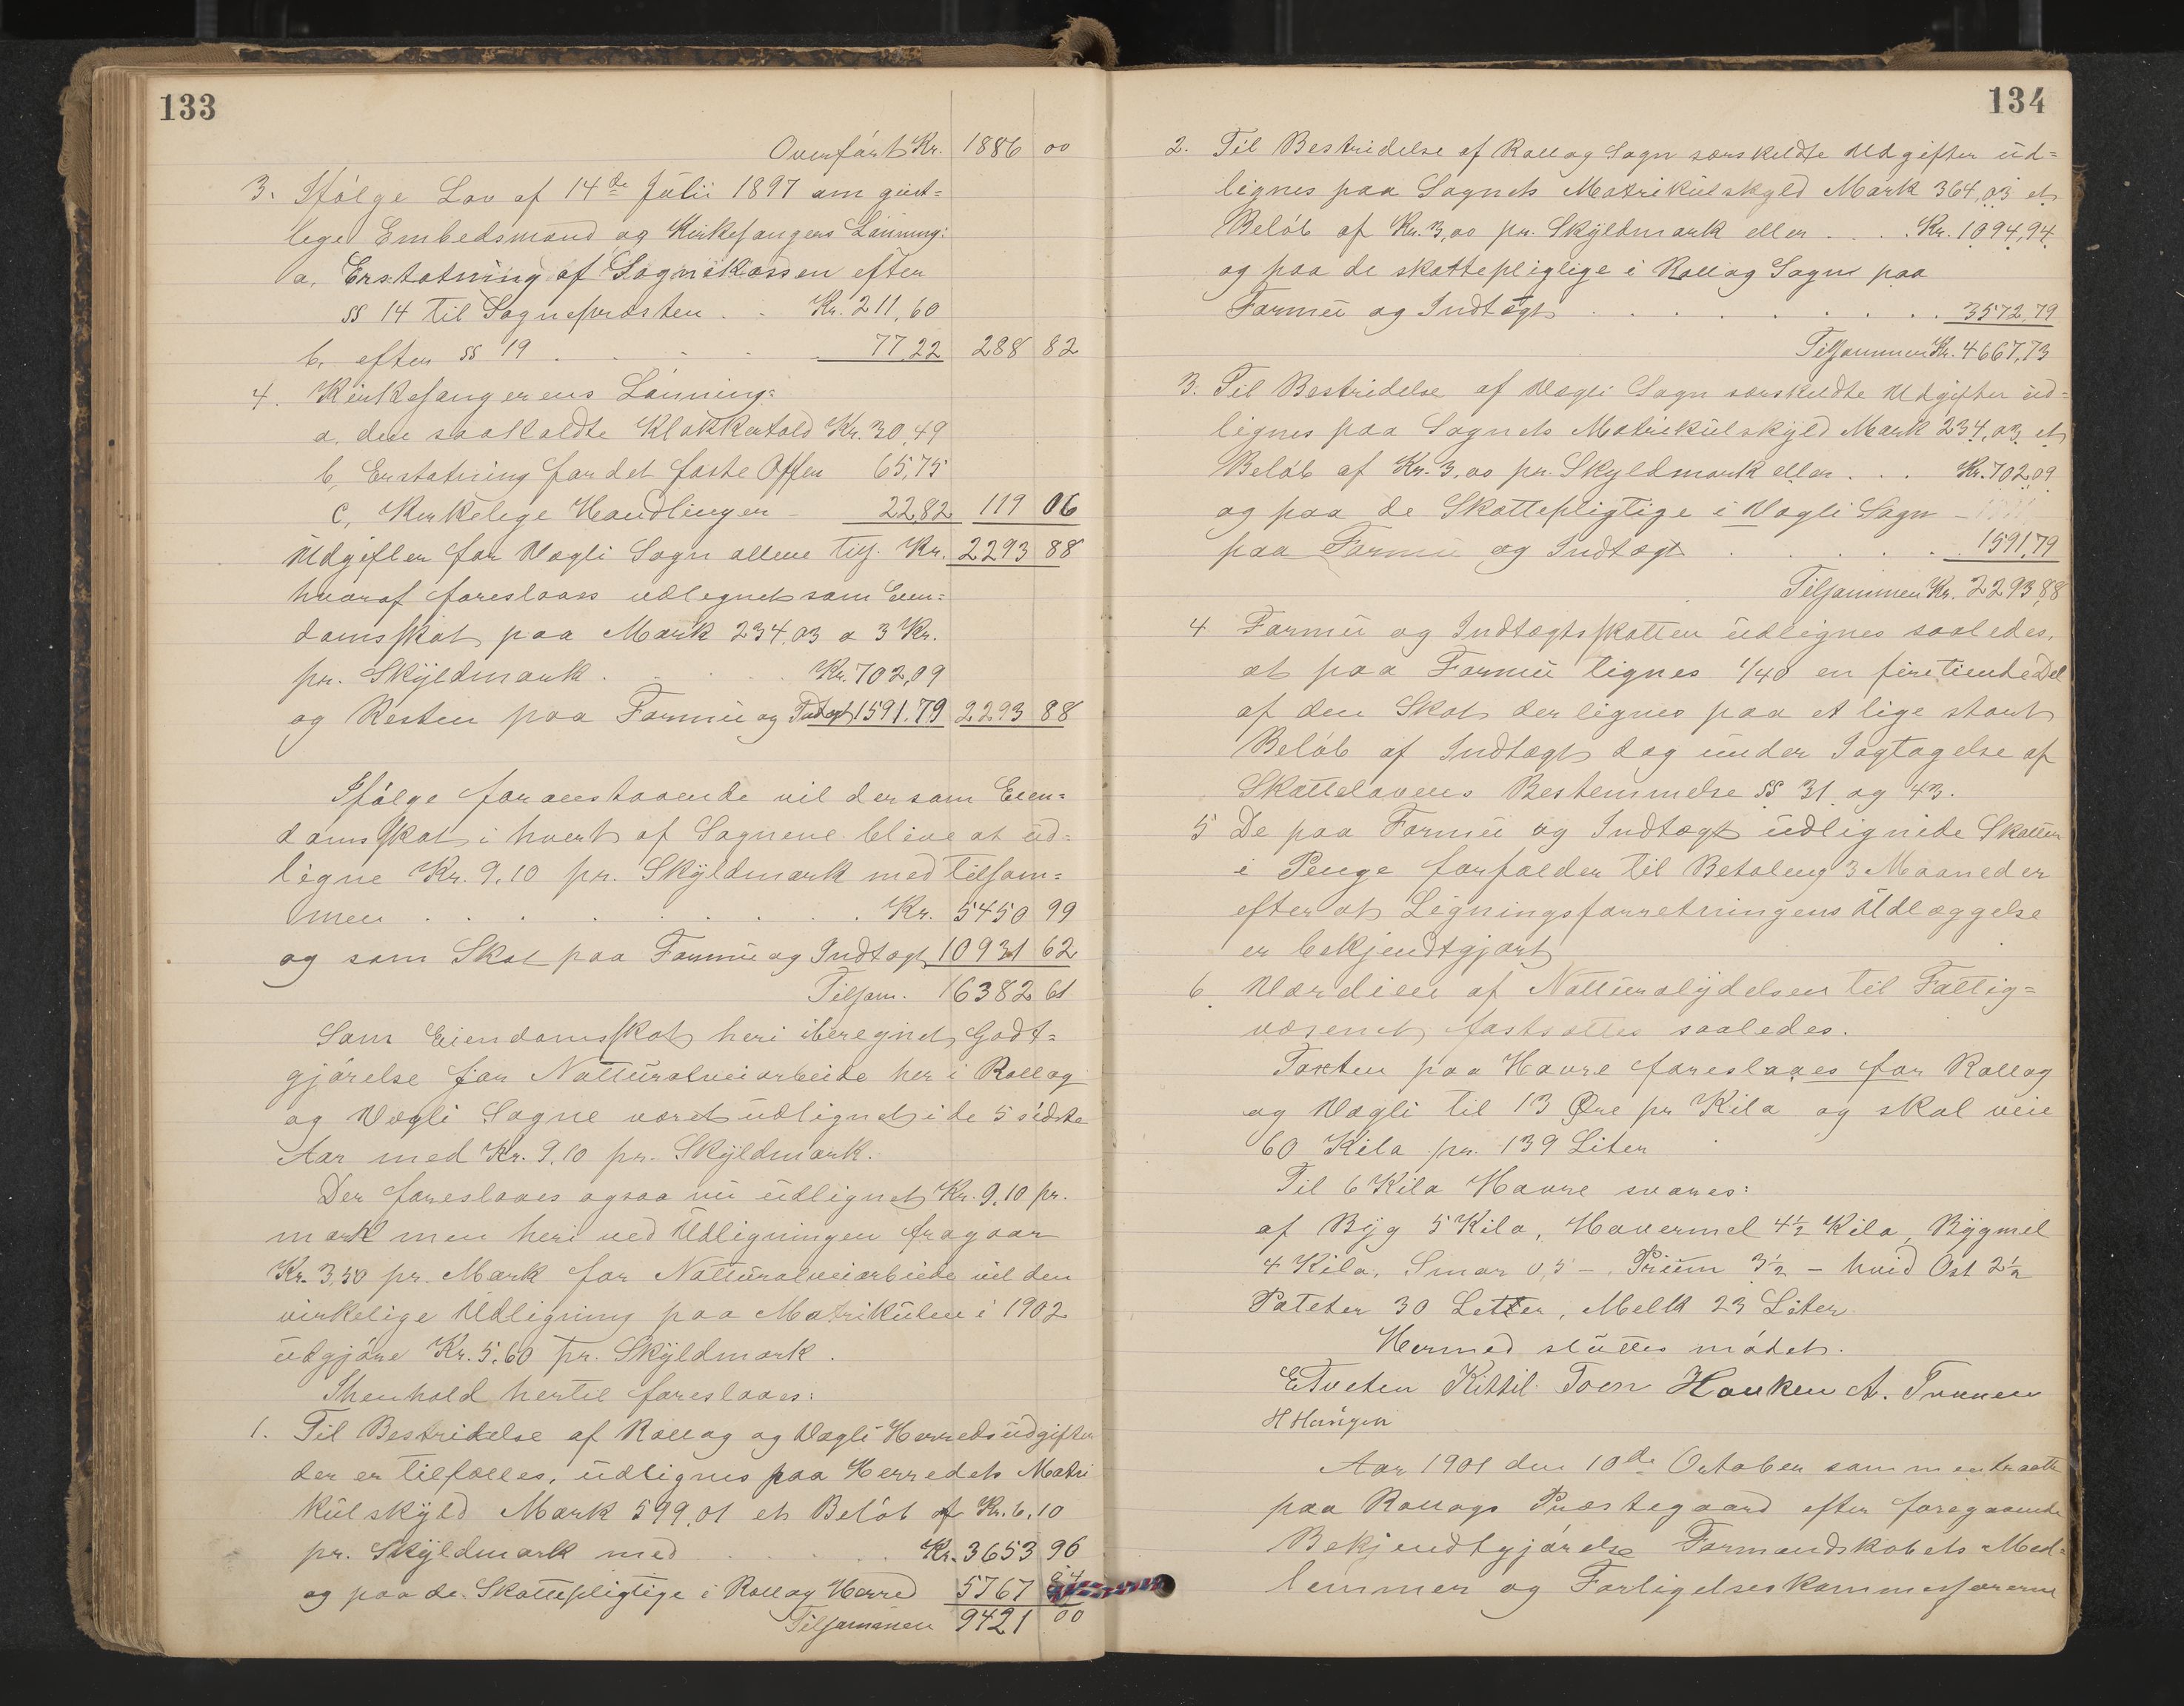 133
Overført Kr. 1886 00
3. Ifølge Lov af 14de Juli 1897 om geist=
lege Embedsmænd og Kirkesangers Lønning:
a. Erstatning af Sognekassen efter
§§ 14 til Sognepræsten . . Kr. 211,60
b. efter §§ 19 . . . . . 77,22 288 82
4. Kirkesangerens Lønning:
a. den saakaldte Klokkertold Kr. 30,49
b. Erstatning for det faste Offer 65,75
c. Kirkelige Handlinger - 22,82 119 06
Udgifter for Vægli Sogn allene tils. Kr. 2293 88
hvoraf foreslaaes udlegnet som Eien=
domsskat paa Mark 234,03 a 3 Kr.
pr. Skyldmark . . . . Kr. 702,09
og Resten paa Formue og Indtægt 1591.79 2293 88
Ifølge foranstaaende vil der som Eien=
domsskat i hvert af Sognene blive at ud=
ligne Kr. 9,10 pr. Skyldmark med tilsam=
men . . . . . . . . Kr. 5450 99
og som Skat paa Formue og Indtægt 10931 62
Tilsam. 16382 61
Som Eiendomsskat heri iberegnet Godt=
gjørelse for Natturalveiarbeide her i Rollag
og Vægli Sogne været udlignet i de 5 sidste
Aar med Kr. 9.10 pr. Skyldmark.
Der foreslaaes ogsaa nu udlignet Kr. 9,10 pr.
mark men heri ved Udligningen fragaar
Kr. 3,50 pr. Mark for Natturalveiarbeide vil den
virkelige Udligning paa Matrikulen i 1902
udgjøre Kr. 5,60 pr. Skyldmark.
I henhold hertil foreslaaes:
1. Til Bestridelse af Rollag og Vægli Herredsudgifter
der er tilfælles, udlignes paa Herredets Matri
kulskyld Mark 599,01 et Beløb af Kr. 6,10
pr. Skyldmark med . . . . Kr. 3653 96
og paa de Skattepligtige i Rollag Herred 5767
Tilsammen 9421 00
134
2. Til Bestridelse af Rollag Sogn særskildte Udgifter ud=
lignes paa Sognets Matrikulskyld Mark 364,03 et
Beløb af Kr. 3,00 pr. Skyldmark eller . . . Kr. 1094,94
og paa de skattepliglige i Rollag Sogn paa
Formue og Indtægt . . . . . . . . 3572,79
Tilsammen Kr. 4667,73
3. Til Bestridelse af Vægli Sogn særskildte Udgifter ud=
lignes paa Sognets Matrikulskyld Mark 234,03 et
Beløb af Kr. 3,00 pr. Skyldmark eller . . . Kr. 702,09
og paa de Skattepligtige i Vægli Sogn
paa Formue og Indtægt . . . . . 1591,79
Tilsammen Kr. 2293,88
4 Formue og Indtægtsskatten udlignes saaledes,
at paa Formue lignes 1/40 en firetiende Del
af den Skat der lignes paa et lige stort
Beløb af Indtægt dog under Iagtagelse af
Skattelovens Bestemmelse §§ 31 og 43.
5 De paa Formue og Indtægt udlignede Skatter
i Penge forfalder til Betaling 3 Maaneder
efter at Ligningsforretningens Udlæggelse
er bekjendtgjort
6. Værdien af Natturalydelsen til Fattig=
væsenet fastsættes saaledes.
Taxten paa Havre foreslaaes for Rollag
og Vægli til 13 Øre pr Kilo og skal veie
60 Kilo pr. 139 Liter
Til 6 Kilo Havre svares:
af Byg 5 Kilo, Havermel 4½ Kilo, Bygmel
4 Kilo, Smør 0,5 - , Priim 3½ - hvid Ost 2½
Poteter 30 Letter, Melk 23 Liter
Hermed sluttes mødet.
E Tveten Kittil Toen Hauken A. Traaen
Aar 1901 den 10de October sammentraatte
paa Rollags Præstegaard efter foregaaende
Bekjendtgjørelse Formandskabets Med=
lemmer og Forligelseskommissærerne